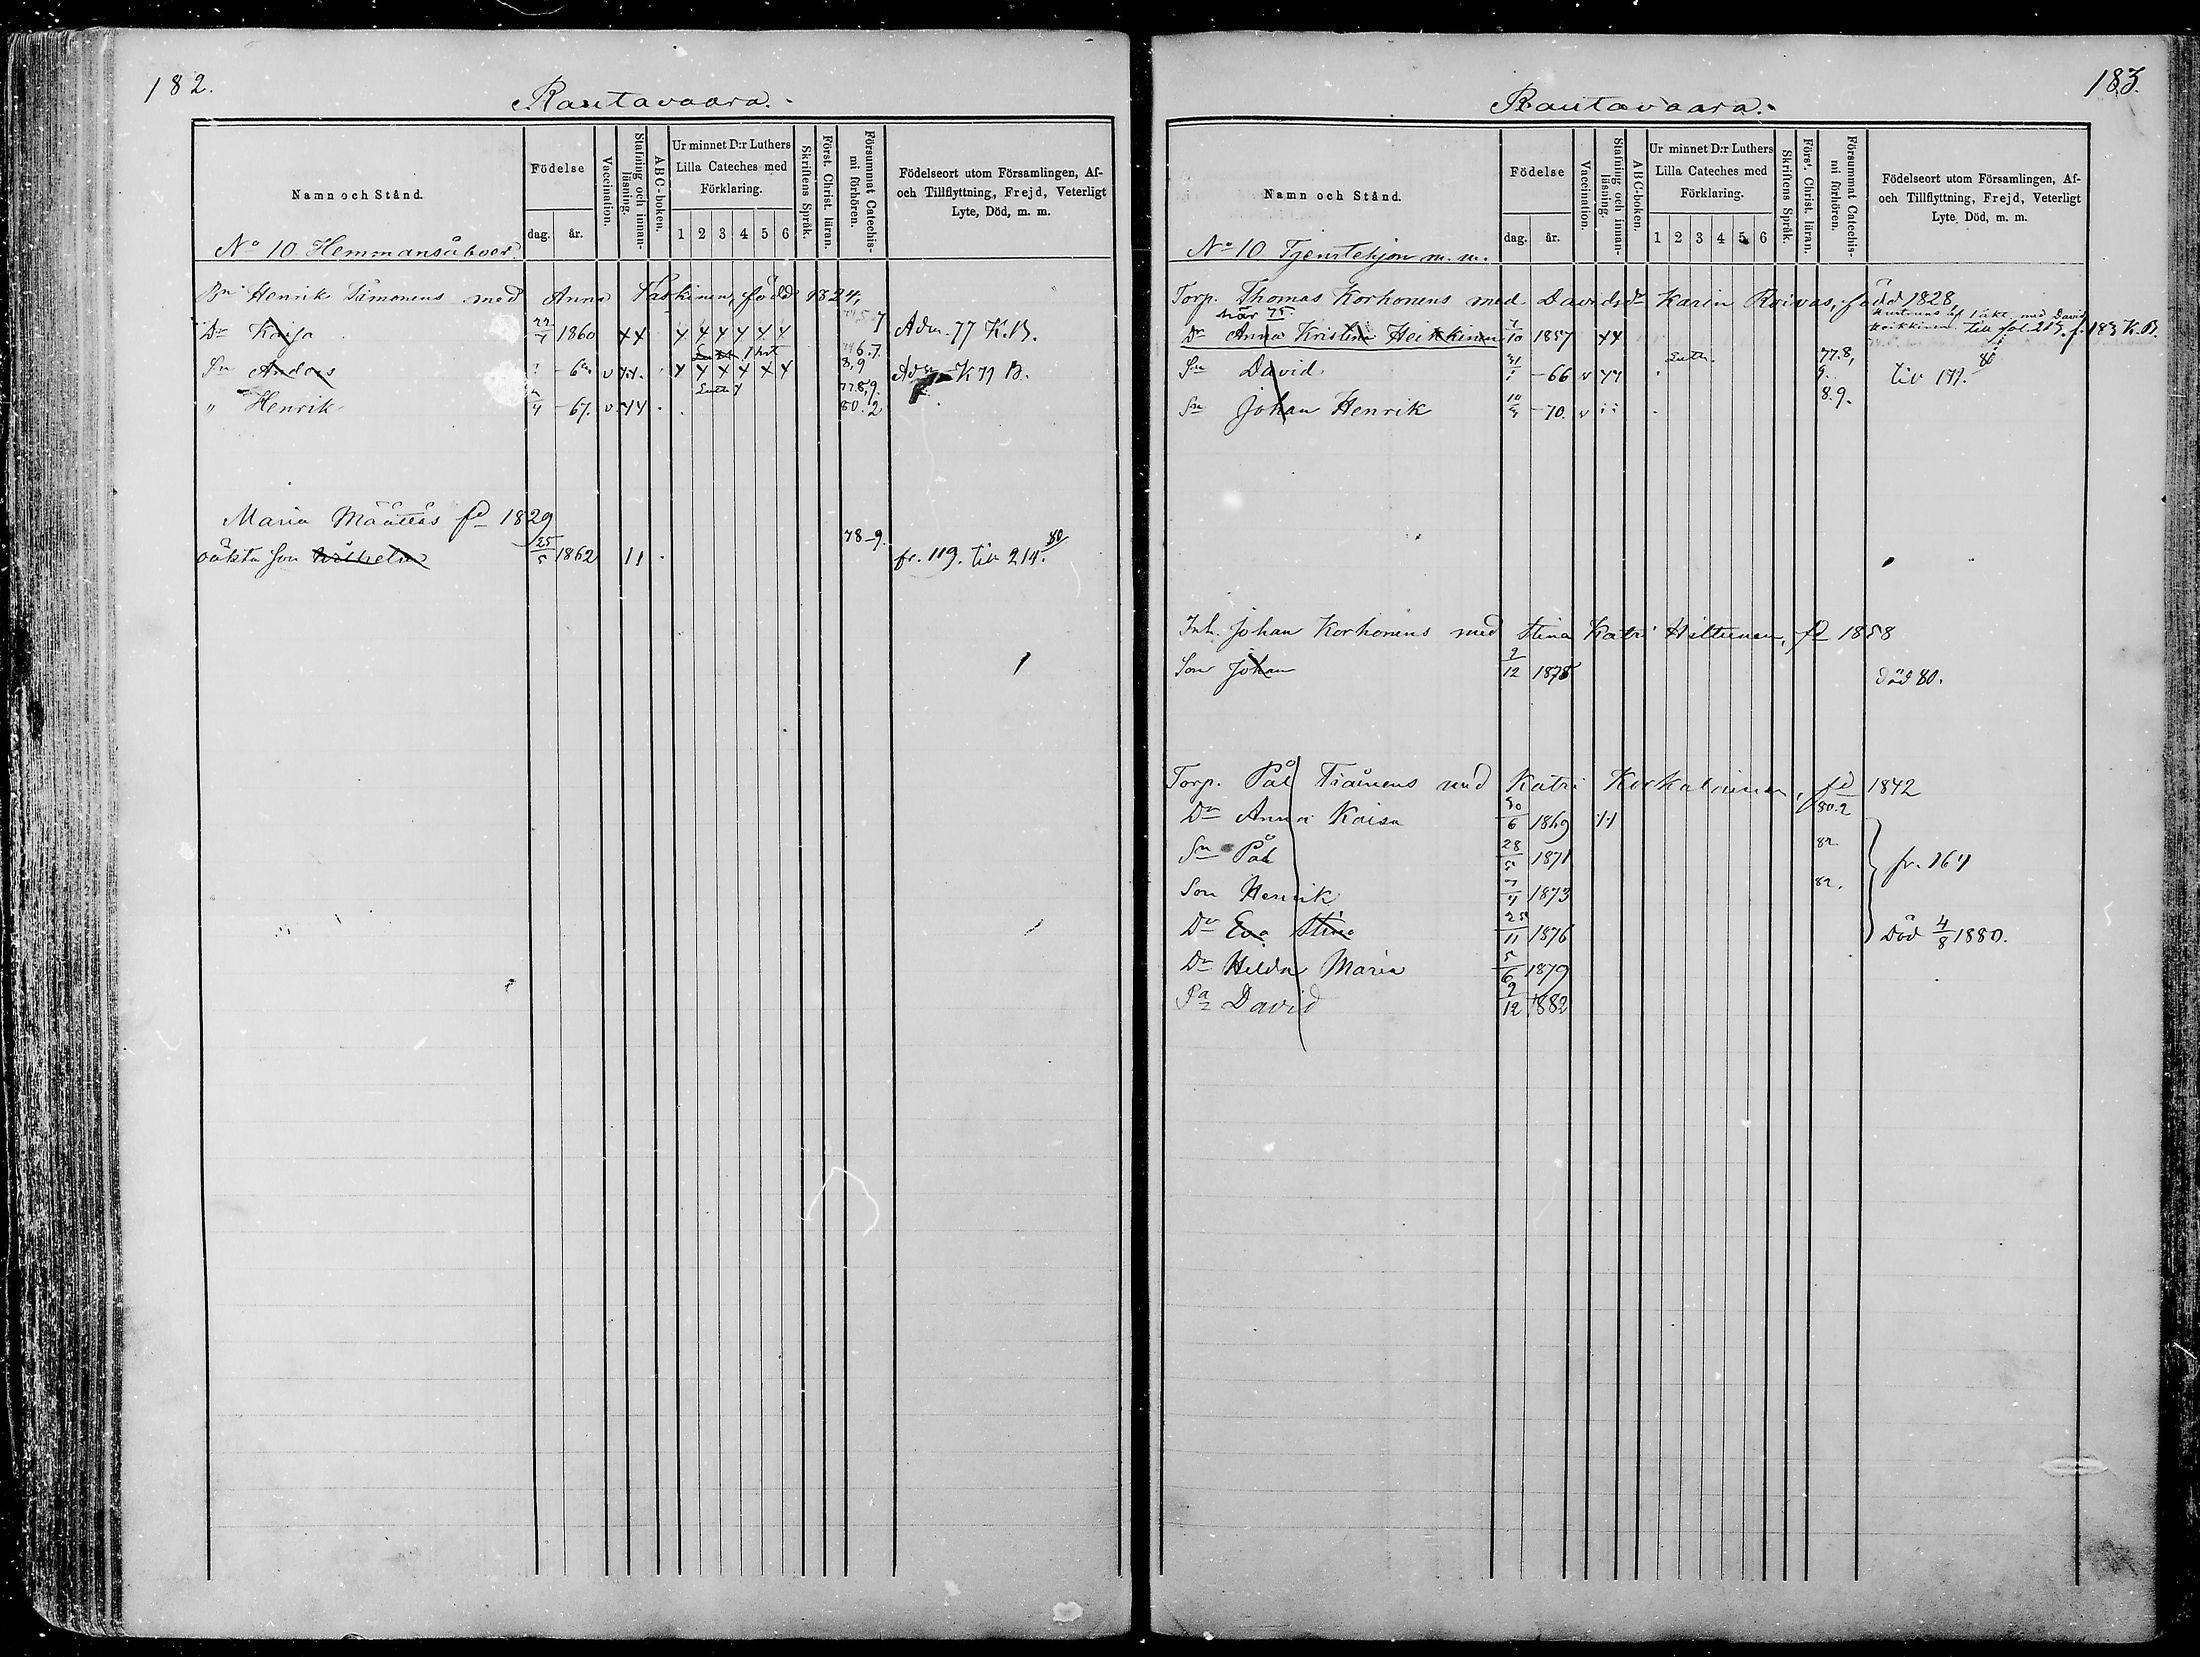 182.
Rautavaara.
Namn och Stånd.
Födelse
dag. år.
Vaccination.
Stafning och innanläsning.
ABC-boken.
Ur minnet D:r Luthers Lilla Cateches med Förklaring.
1 2 3 4 5 6
Skriftens Språk.
Först. Christ. läran.
Försummat Catechismi förhören.
Födelseort utom Församlingen, Af- och Tillflyttning, Frejd, Veterligt Lyte, Död, m. m.
No 10. Hemmansåboer
Henrik Simonens med Anna Laskinen, född 1824,
Dr Kaisa 1860 7 Adm. 77 K.B.
Sn Anders 8,9
" Henrik 67. v 80. 2
Maria Määttäs fd 1829
oäkta son Wilhelm 25/5 1862 11 78-9. fr. 119. till 214. 80
183.
Rautavaara.
Namn och Stånd.
Födelse
dag. år.
Vaccination.
Stafning och innanläsning.
ABC-boken.
Ur minnet D:r Luthers Lilla Cateches med Förklaring.
1 2 3 4 5 6
Skriftens Språk.
Först. Christ. läran.
Försummat Catechismi förhören.
Födelseort utom Församlingen, Af- och Tillflyttning, Frejd, Veterligt Lyte, Död, m. m.
No 10 Tjenstehjon m. m.
Torp. Thomas Korhonens med Davidsdr Karin Roivas, född 1828,
Dr Anna Kristina Heikkinen 7/10 1857 183 K.B.
Sn David 66 v 77.8, 9. 80
Sn Johan Henrik 70. v 8.9.
Inh. Johan Korhonens med Stina Katri Hiltunen, fd 1858
Son Johan 2/12 1878 död 80.
Torp. Pål Tiainens med Katri Korkalainen, fd 1842
Dr Anna Kaisa 30/6 1869 11 80.2
Sn Pål 28/5 1871 82. fr. 167
Son Henrik 1873 82.
Dr Eva Stina 25/11 1876 Död 4/8 1880.
Dr Hilda Maria 5/6 1879
David 2/12 1882